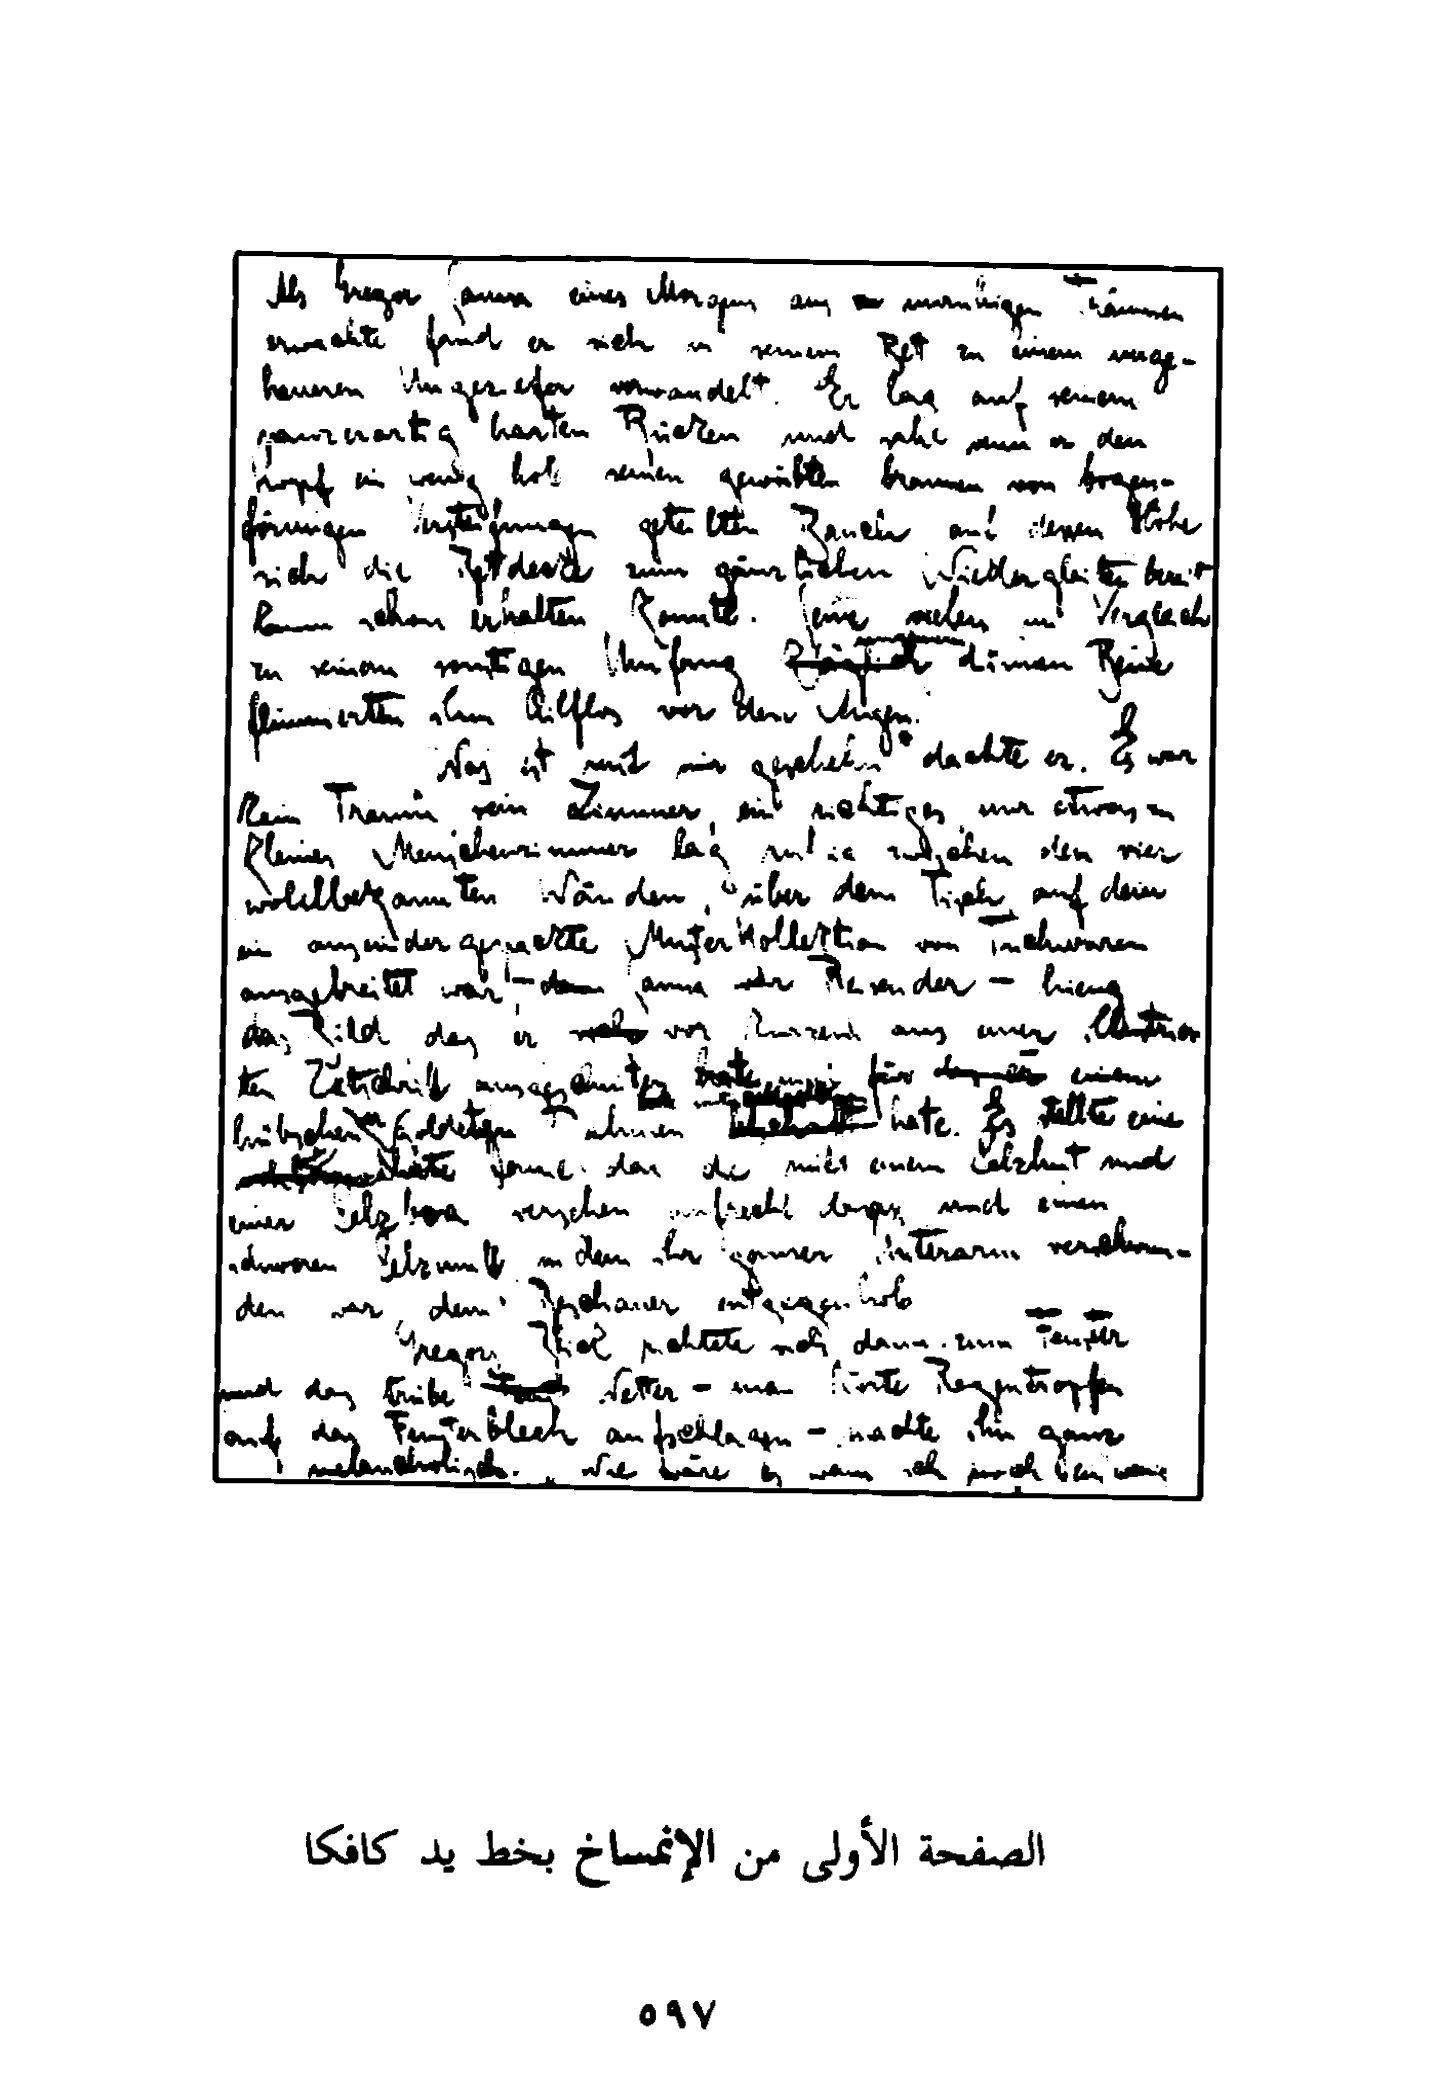 Als Gregor Samsa eines Morgens aus unruhigen Träumen
erwachte fand er sich in seinem Bett zu einem unge-
heueren Ungeziefer verwandelt. Er lag auf seinem
panzerartig harten Rücken und sah wenn er den
Kopf ein wenig hob seinen gewölbten braunen von bogen-
förmigen Versteifungen geteilten Bauch auf dessen Höhe
sich die Bettdecke zum gänzlichen Niedergleiten bereit
kaum noch erhalten konnte. Seine vielen im Vergleich
zu seinem sonstigen Umfang dünnen Beine
flimmerten ihm hilflos vor den Augen.
Was ist mit mir geschehn dachte er. Es war
kein Traum sein Zimmer, ein richtiges nur etwas zu
kleines Menschenzimmer lag ruhig zwischen den vier
wohlbekannten Wänden, über dem Tisch auf dem
ein auseinandergepackte Musterkollektion von Tuchwaren
ausgebreitet war – Samsa war Reisender – hieng
das Bild das er vor kurzem aus einer illustrier
ten Zeitschrift ausgeschnitten einem
hübschen vergoldeten Rahmen hatte. Es stellte eine
Dame dar die mit einem Pelzhut und
einer Pelzboa versehen aufrecht dasass und einen
schweren Pelzmuff in dem ihr ganzer Unterarm verschwun-
den war dem Beschauer entgegenhob
Gregors Blick richtete sich dann zum Fenster
und das trübe Wetter – man hörte Regentropfen
auf das Fensterblech aufschlagen – machte ihn ganz
melancholisch. Wie wäre es wenn ich noch ein wenig
الصفحة الأولى من الإنمساخ بخط يد كافكا
٥٩٧